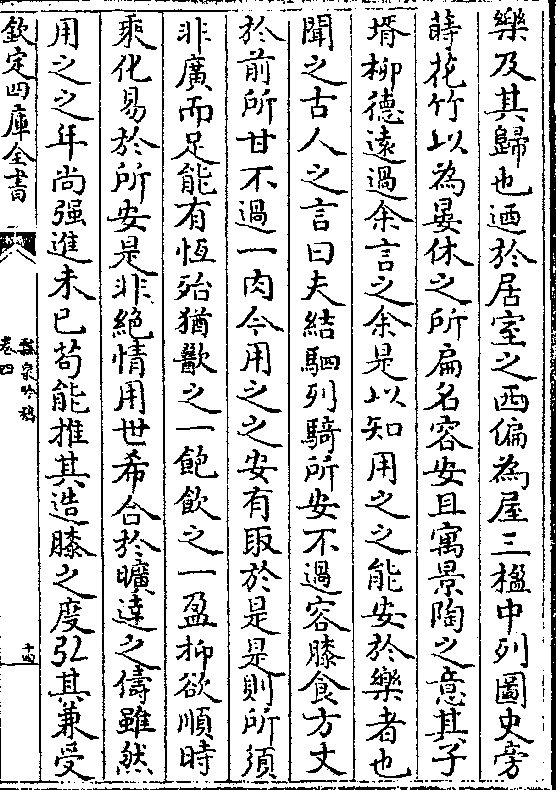 樂及其歸也迺於居室之西偏為屋三楹中列圖史旁
蒔花竹以為晏休之所扁名容安且寓景陶之意其子
壻柳德遠過余言之余是以知用之之能安於樂者也
聞之古人之言曰夫結駟列騎所安不過容膝食方丈
於前所甘不過一肉今用之之安有取於是是則所須
非廣而足能有恆殆猶歠之一飽飲之一盈抑欲順時
乘化易於所安是非絕情用世希合於曠達之儔雖然
用之之年尚强進未已苟能推其造膝之度引其兼受
欽定四庫全書
卷四
十四